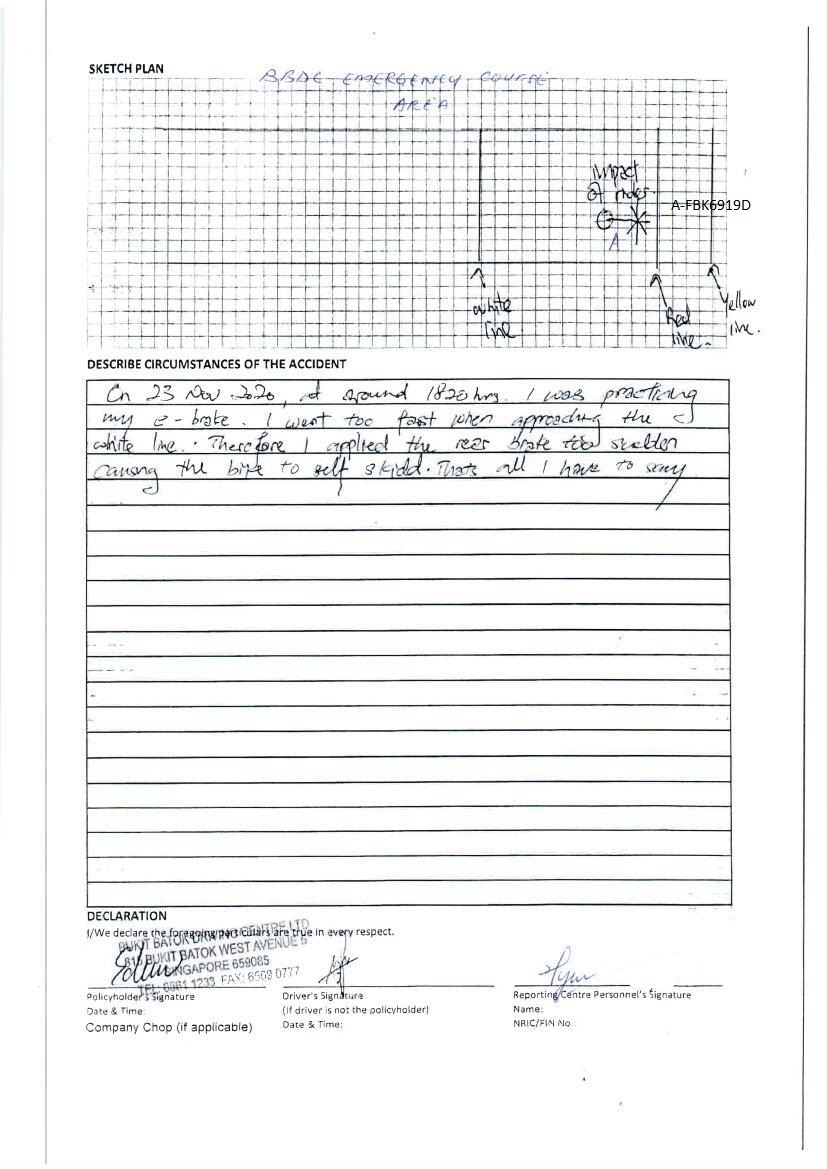 SKETCH PLAN
BBDC EMERGENCY COURSE
AREA
Impact
of rider
A-FBK6919D
A
white
line
Red
line.
Yellow
line.
DESCRIBE CIRCUMSTANCES OF THE ACCIDENT
On 23 Nov 2020, at around 1820 hrs. I was practicing
my e-brake. I went too fast when approaching the
white line. Therefore I applied the rear brake too sudden
causing the bike to self skidd. Thats all I have to say
DECLARATION
I/We declare the foregoing particulars are true in every respect.
BUKIT BATOK DRIVING CENTRE LTD
815 BUKIT BATOK WEST AVENUE 5
SINGAPORE 659085
TEL: 6561 1233 FAX: 6569 0777
Policyholder's Signature
Date & Time:
Company Chop (if applicable)
Driver's Signature
(If driver is not the policyholder)
Date & Time:
Reporting Centre Personnel's Signature
Name:
NRIC/FIN No